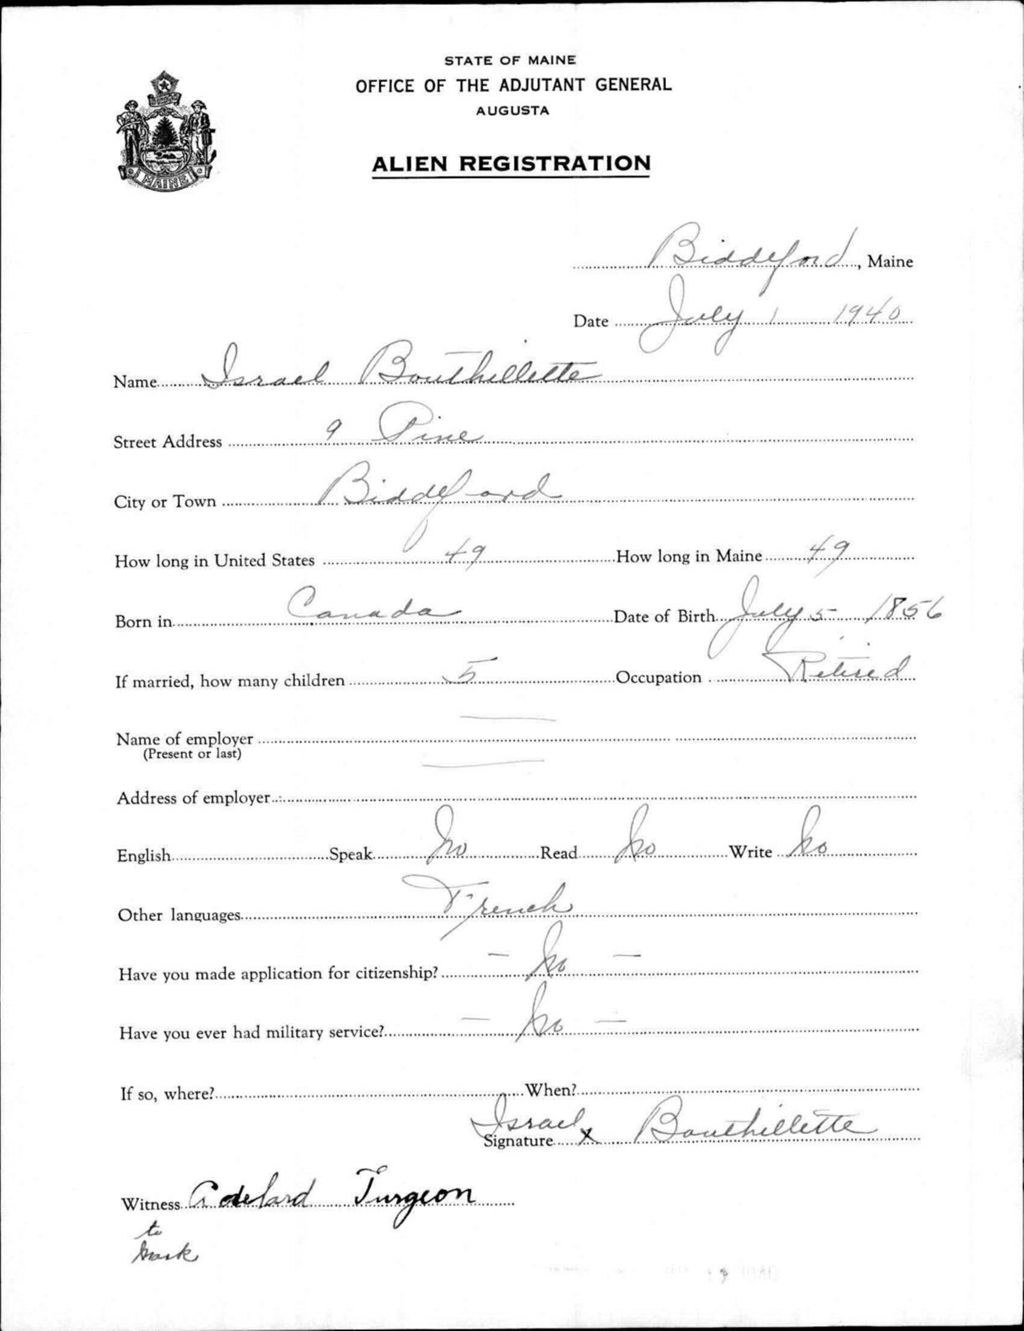 STATE OF MAINE
OFFICE OF THE ADJUTANT GENERAL
AUGUSTA
ALIEN REGISTRATION
MAINE
Biddeford, Maine
Date July 1 1940
Name Israel Bouthillette
Street Address 9 Pine
City or Town Biddeford
How long in United States 49 How long in Maine 49
Born in Canada Date of Birth July 5 1856
If married, how many children 5 Occupation Retired
Name of employer
(Present or last)
Address of employer
English Speak No Read No Write No
Other languages French
Have you made application for citizenship? - No -
Have you ever had military service? - No -
If so, where? When?
Signature Israel x Bouthillette
Witness Adelard Turgeon
to
Mark